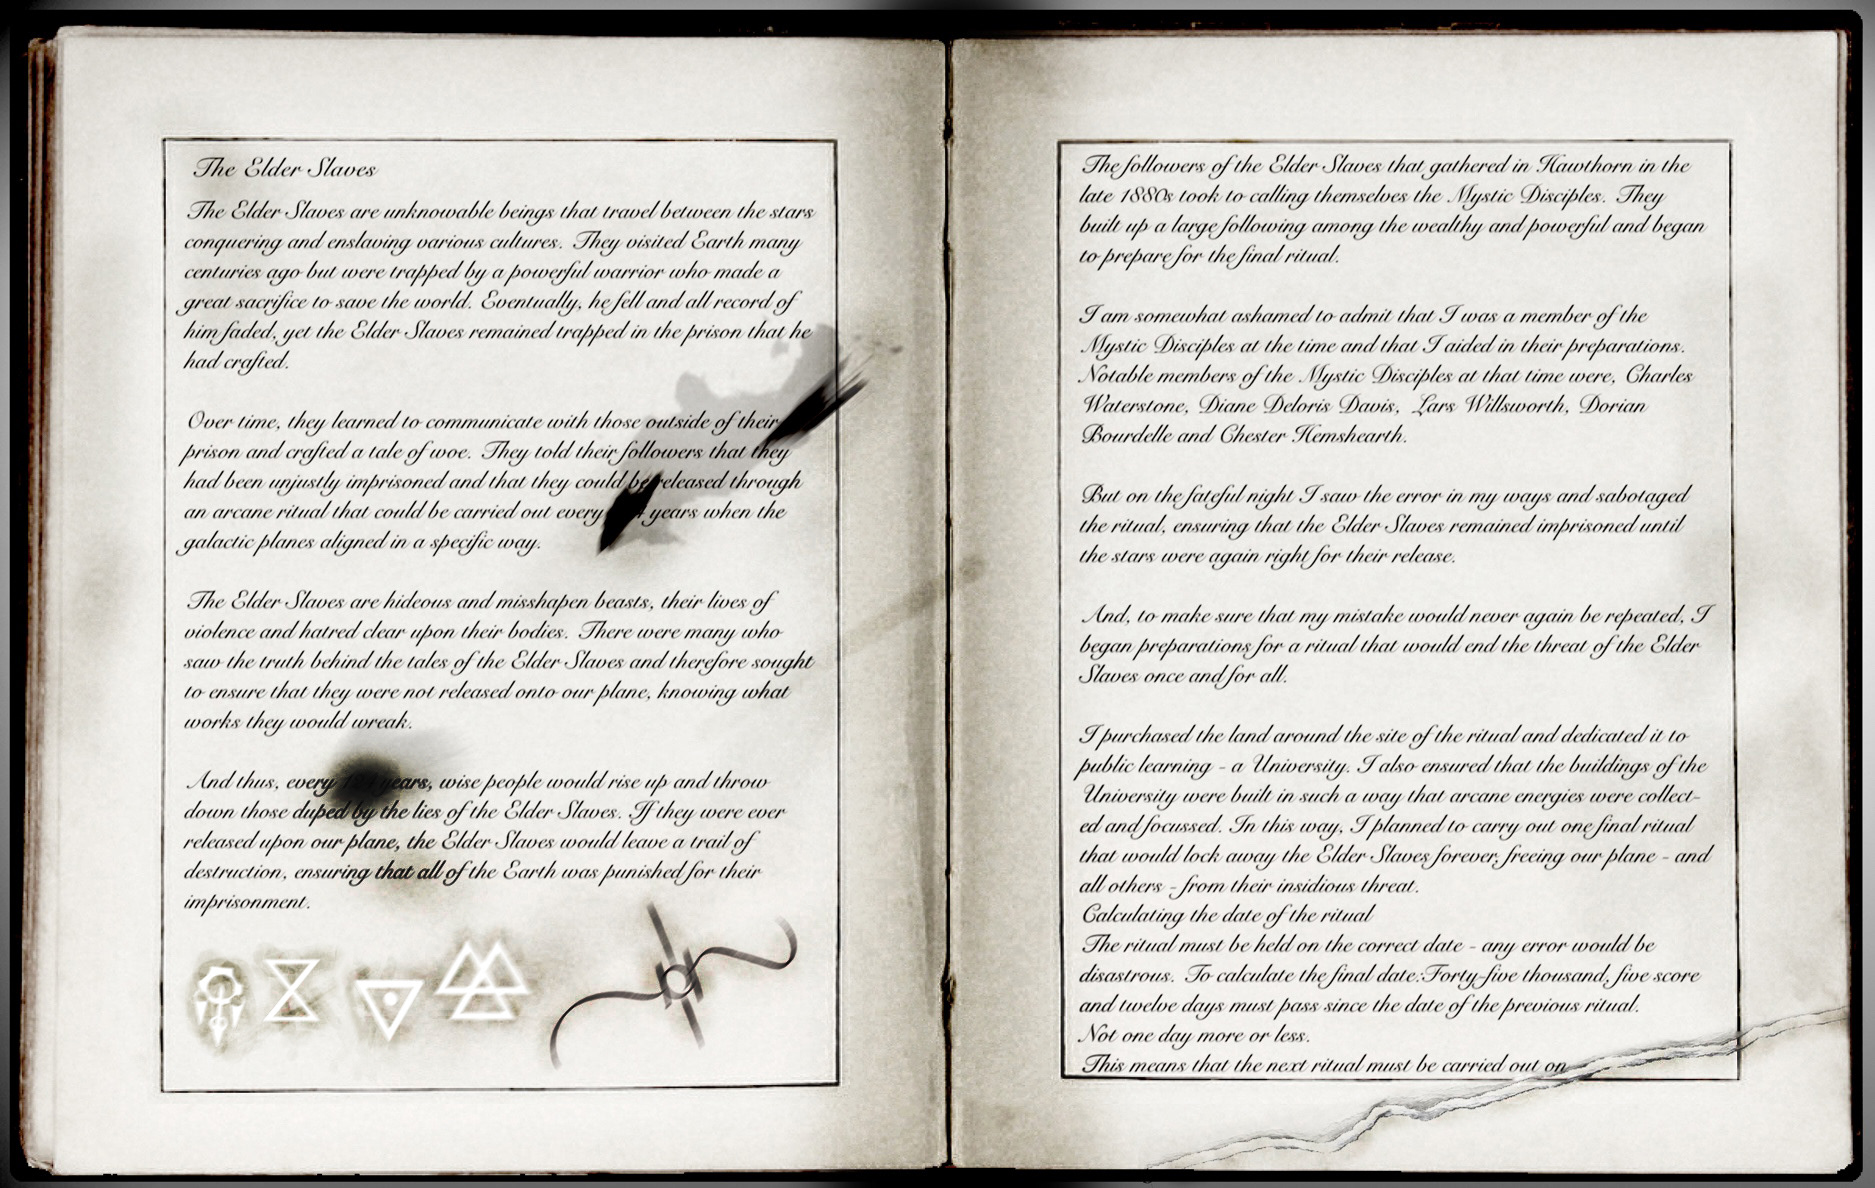 The Elder Slaves
The Elder Slaves are unknowable beings that travel between the stars
conquering and enslaving various cultures. They visited Earth many
centuries ago but were trapped by a powerful warrior who made a
great sacrifice to save the world. Eventually, he fell and all record of
him faded, yet the Elder Slaves remained trapped in the prison that he
had crafted.
Over time, they learned to communicate with those outside of their
prison and crafted a tale of woe. They told their followers that they
had been unjustly imprisoned and that they could be released through
an arcane ritual that could be carried out every years when the
galactic planes aligned in a specific way.
The Elder Slaves are hideous and misshapen beasts, their lives of
violence and hatred clear upon their bodies. There were many who
saw the truth behind the tales of the Elder Slaves and therefore sought
to ensure that they were not released onto our plane, knowing what
works they would wreak.
And thus, every years, wise people would rise up and throw
down those duped by the lies of the Elder Slaves. If they were ever
released upon our plane, the Elder Slaves would leave a trail of
destruction, ensuring that all of the Earth was punished for their
imprisonment.
The followers of the Elder Slaves that gathered in Hawthorn in the
late 1880s took to calling themselves the Mystic Disciples. They
built up a large following among the wealthy and powerful and began
to prepare for the final ritual.
I am somewhat ashamed to admit that I was a member of the
Mystic Disciples at the time and that I aided in their preparations.
Notable members of the Mystic Disciples at that time were, Charles
Waterstone, Diane Deloris Davis, Lars Willsworth, Dorian
Bourdelle and Chester Hemshearth.
But on the fateful night I saw the error in my ways and sabotaged
the ritual, ensuring that the Elder Slaves remained imprisoned until
the stars were again right for their release.
And, to make sure that my mistake would never again be repeated, I
began preparations for a ritual that would end the threat of the Elder
Slaves once and for all.
I purchased the land around the site of the ritual and dedicated it to
public learning - a University. I also ensured that the buildings of the
University were built in such a way that arcane energies were collect-
ed and focussed. In this way, I planned to carry out one final ritual
that would lock away the Elder Slaves forever, freeing our plane - and
all others - from their insidious threat.
Calculating the date of the ritual
The ritual must be held on the correct date - any error would be
disastrous. To calculate the final date:Forty-five thousand, five score
and twelve days must pass since the date of the previous ritual.
Not one day more or less.
This means that the next ritual must be carried out on